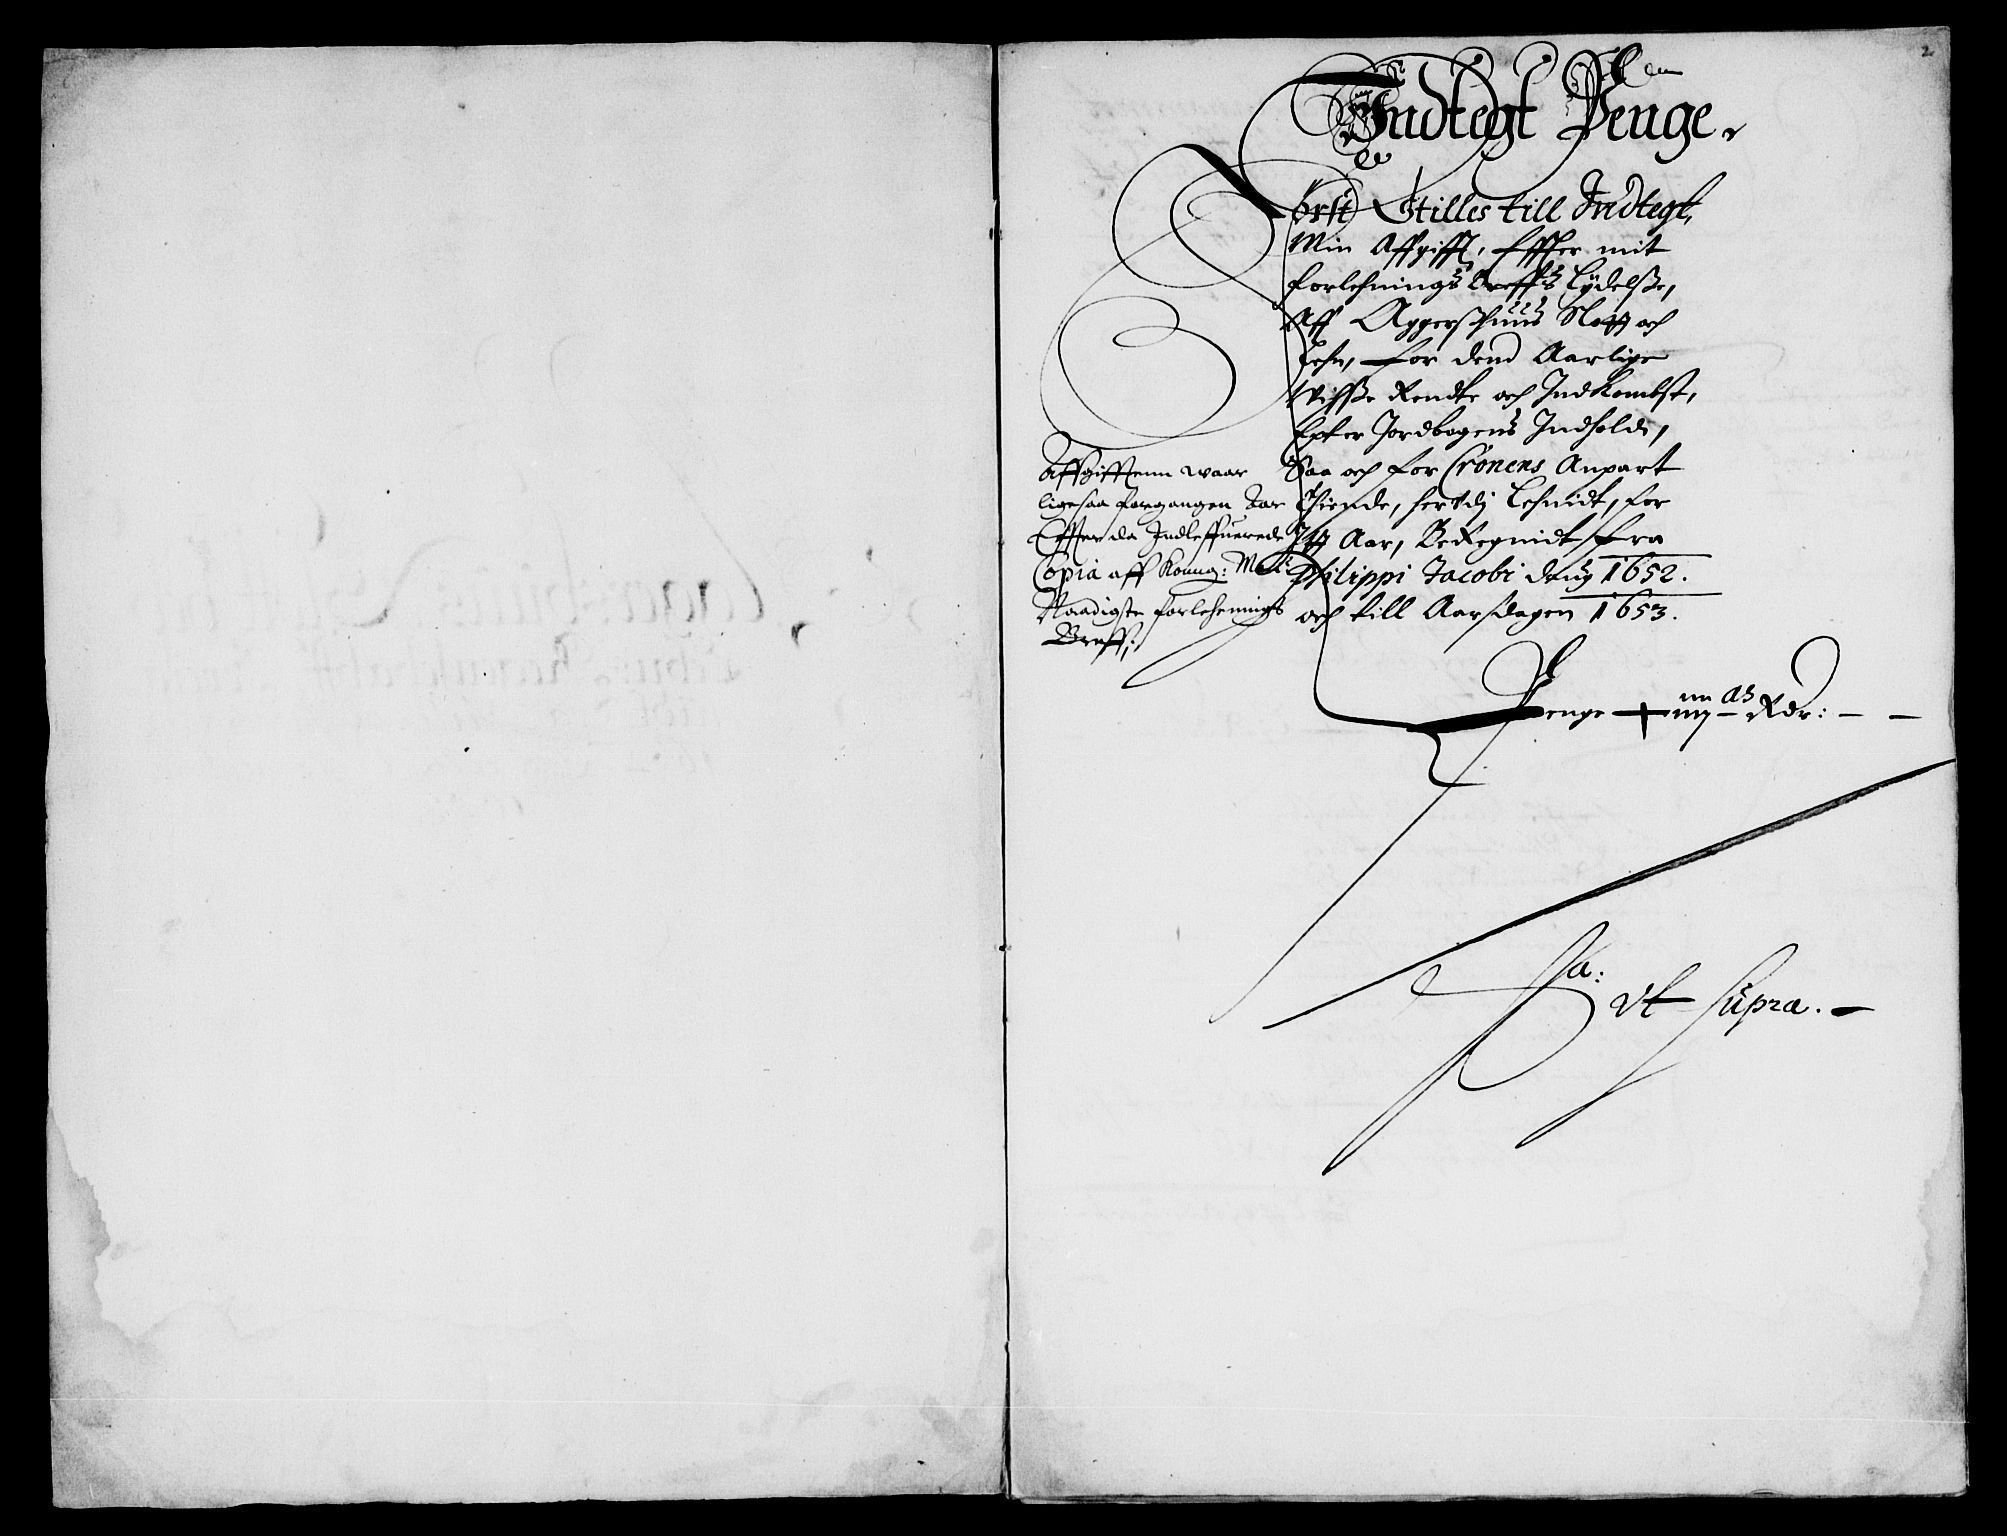 2
Indtegt Penge.
Först Stilles till Indtegt,
Min Affgifft, Effter mit
forlehnings breffs Lydelsse,
Aff Aggerszhuus Slott och
Lehn, for dend Aarlige
Visse Rendte och Indkombst,
Epter Jordbogens Indholde,
Saa och for Cronens Anpart
Thiende, her udj Lehnidt, for
Itt Aar, Beregnidt fra
Philippi Jacobi 1652.
och till Aarsdagen 1653.
Affgifftenn waar
ligesaa forgangen Aar
Effter da Indleffuerede
Copia aff Konng: May:
Naadigste forlehnings
Breff;
Penge Rdr:
Sa:
Vt Supra.